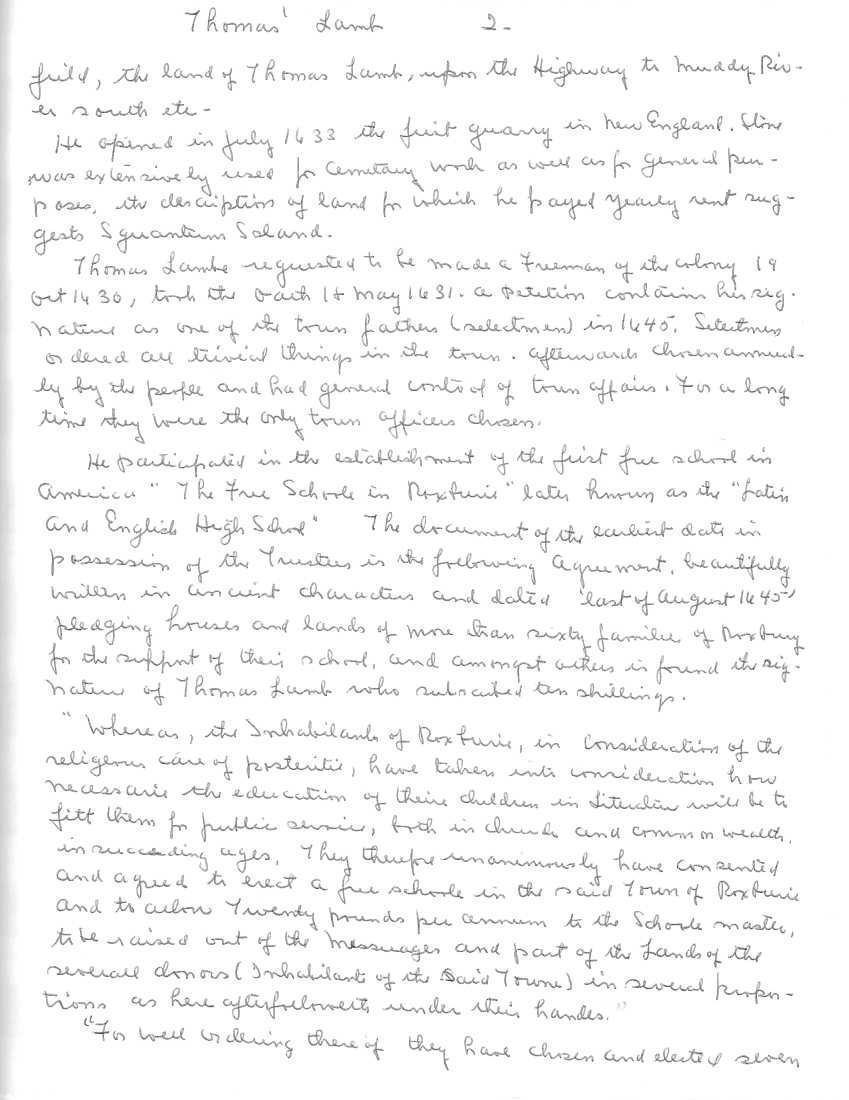 Thomas' Lamb 2-
field, the land of Thomas Lamb, upon the Highway to Muddy Riv-
er south etc -
He opened in July 1633 the first quarry in New England. Stone
was extensively used for Cemetary work as well as for general pur-
poses, its description of land for which he payed yearly rent sug-
gests Squantum Island.
Thomas Lambe requested to be made a Freeman of the colony 19
Oct 1630, took the Oath 18 May 1631. A petition contains his sig-
nature as one of the town fathers (selectmen) in 1645. Selectmen
ordered all trivial things in the town. Afterwards chosen annual-
ly by the people and had general control of town affairs. For a long
time they were the only town officers chosen.
He participated in the establishment of the first free school in
America " The Free Schoole in Roxburie" later known as the "Latin
and English High School" The document of the earliest date in
possession of the Trustees is the following Agreement, beautifully
written in ancient characters and dated 'last of August 1645'
pledging houses and lands of more than sixty families of Roxbury
for the support of their school, and amongst others is found the sig-
nature of Thomas Lamb who subscribed ten shillings.
" Whereas, the Inhabitants of Roxburie, in Consideration of the
religeous care of posteritie, have taken into consideration how
necessarie the education of theire children in Literature will be to
fitt them for public service, both in church and common wealth,
in succeeding ages, They therefore unanimously have consented
and agreed to erect a free schoole in the said Town of Roxburie
and to allow Twenty pounds per annum to the Schoole master,
to be raised out of the Messuages and part of the Lands of the
severall donors (Inhabitants of the Said Towne) in several propor-
tions as here afterfoloweth under their handes."
"For well ordering there of they have chosen and elected seven